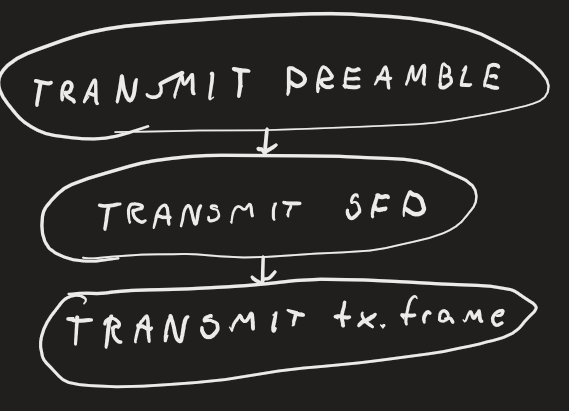 TRANSMIT PREAMBLE
TRANSMIT SFD
TRANSMIT tx.frame